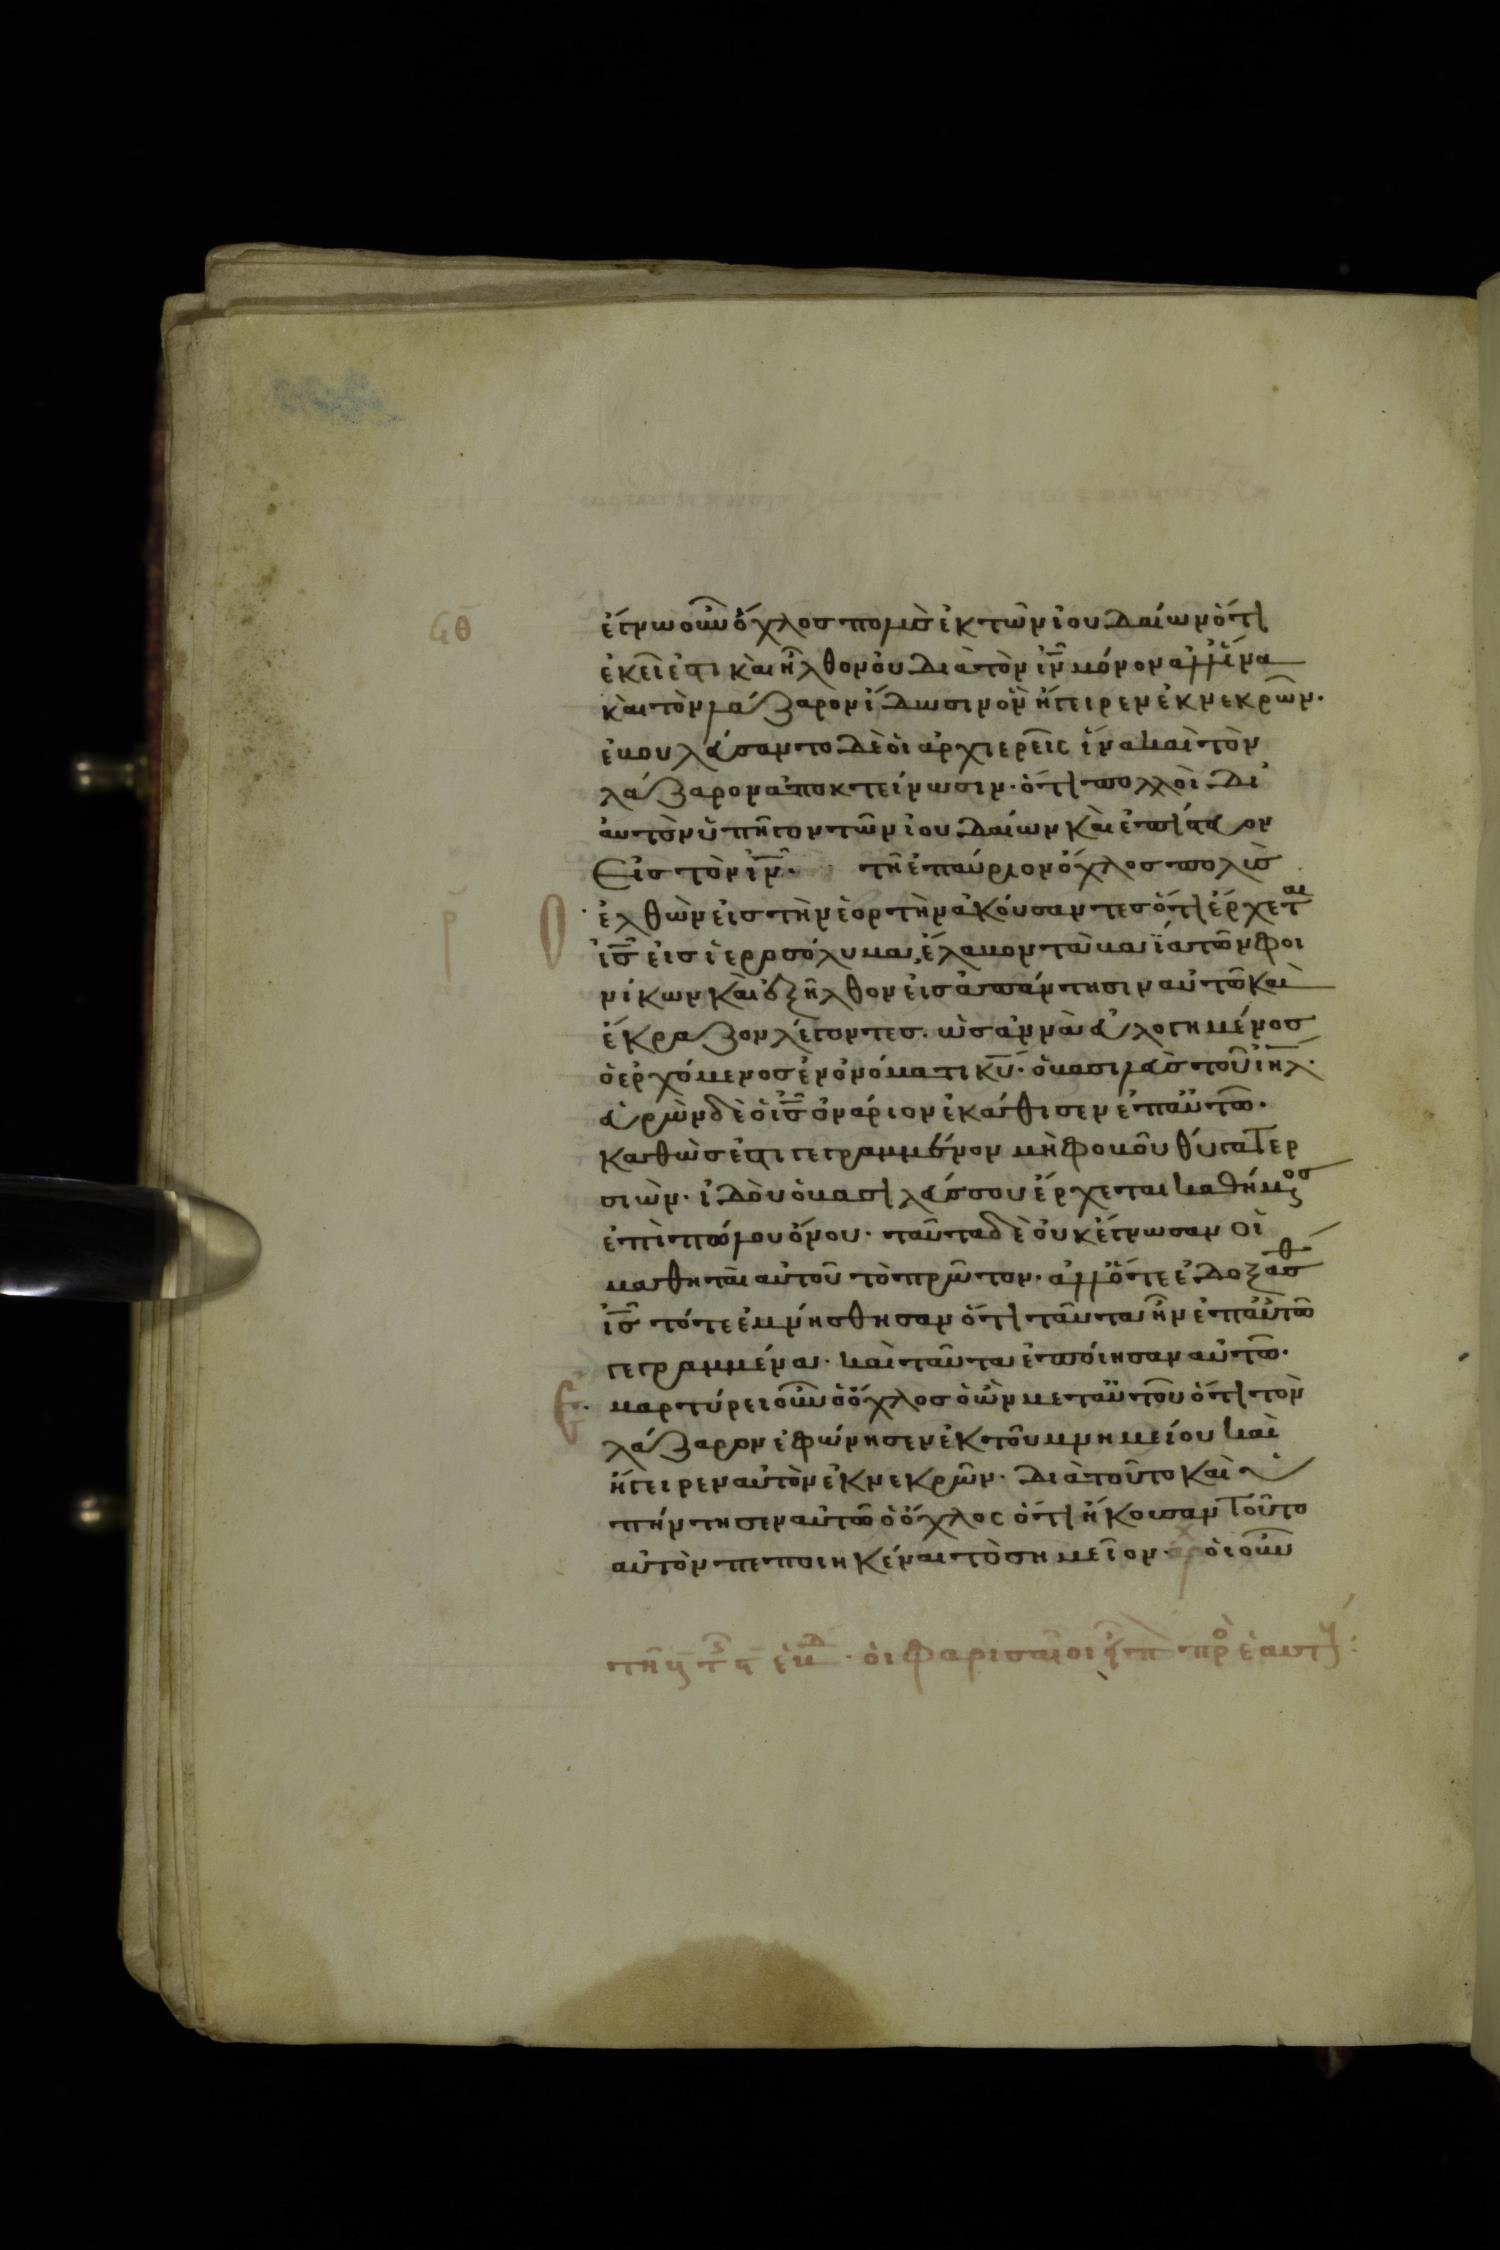 ϟθ
ἔγνω οὖν ὄχλος πολὺς ἐκ τῶν ἰουδαίων ὅτι
ἐκεῖ ἐστι καὶ ἦλθον οὐ διὰ τὸν ι̅ν̅ μόνον ἀλλ' ἵνα
καὶ τὸν λάζαρον ἴδωσιν ὃν ἤγειρεν ἐκ νεκρῶν.
ἐβουλεύσαντο δὲ οἱ ἀρχιερεῖς ἵνα καὶ τὸν
λάζαρον ἀποκτείνωσιν· ὅτι πολλοὶ δι'
αυτὸν ὑπῆγον τῶν ἰουδαίων καὶ ἐπίστευον
εἰς τὸν ι̅ν̅. τῇ ἐπαύριον ὄχλος πολὺς
ἐλθὼν εἰς τὴν ἑορτὴν ἀκούσαντες ὅτι ἔρχεται
ρ
ι̅ς̅ εἰς ἱεροσόλυμα, ἔλαβον τὰ βαΐα τῶν φοι
νίκων καὶ ἐξῆλθον εἰς ἀπάντησιν αὐτῶ καὶ
ἔκραζον λέγοντες. ὡσαννὰ εὐλογημένος
ὁ ἐρχόμενος ἐν ὀνόματι κ̅υ̅. ὁ βασιλεὺς τοῦ ι̅η̅λ̅.
εὑρὼν δὲ ὁ ι̅ς̅ ὀνάριον ἐκάθισεν ἐπ' αὐτῶ.
καθώς ἐστι γεγραμμένον μὴ φοβοῦ θύγατερ
σιών. ἰδοὺ ὁ βασιλεύς σου ἔρχεται καθήμενος
ἐπὶ πῶλου ὄνου. ταῦτα δὲ οὐκ ἔγνωσαν οἱ
μαθηταὶ αὐτοῦ τὸ πρῶτον. ἀλλ' ὅτε ἐδοξάσθ
ι̅ς̅ τότε ἐμνήσθησαν ὅτι ταῦτα ἦν ἐπ' αὐτῶ
γεγραμμένα. καὶ ταῦτα ἐποίησαν αὐτῶ.
ἐμαρτύρει οὖν ὁ ὄχλος ὁ ὢν μετ' αὐτοῦ ὅτι τὸν
λάζαρον ἐφώνησεν ἐκ τοῦ μνημείου καὶ
ἤγειρεν αὐτὸν ἐκ νεκρῶν. διὰ τοῦτο καὶ ὑ
πήντησεν αὐτῶ ὁ ὄχλος ὅτι ἤκουσαν τοῦτο
αὐτὸν πεποιηκέναι τὸ σημεῖον. ἀρχ οἱ οὖν
οἱ φαρισαῖοι πρὸ ἑαυτ